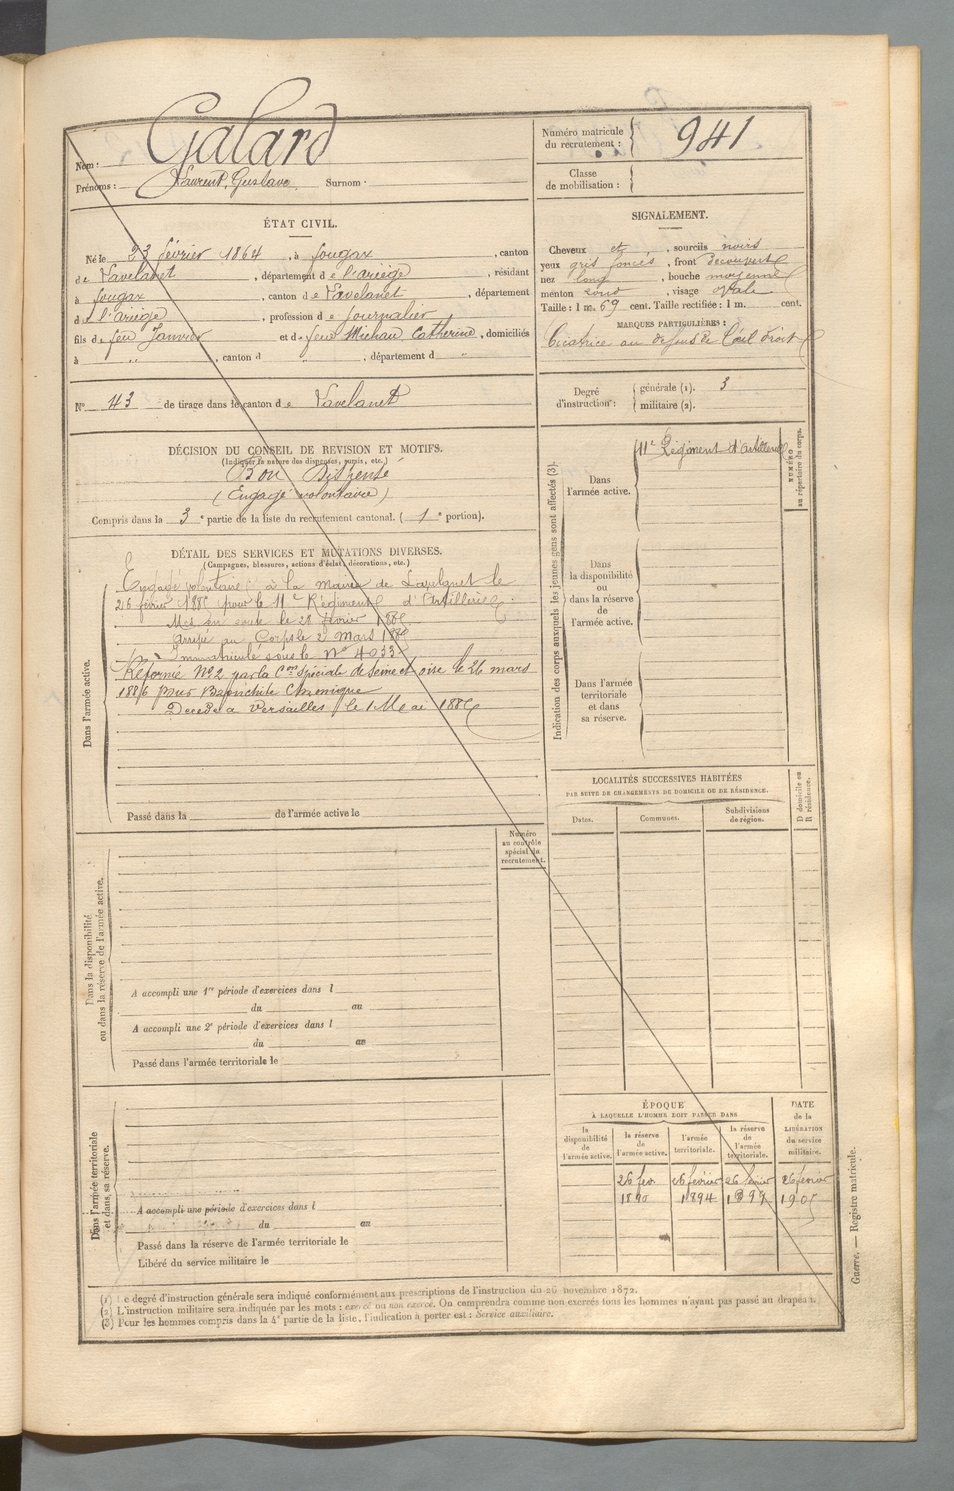 Nom : Galard
Prénoms : Laurent, Gustave Surnom :
Numéro matricule du recrutement : 941
Classe de mobilisation :
ÉTAT CIVIL.
Né le 23 février 1864, à fougax, canton
de Lavelanet, département de l'ariège, résidant
à fougax, canton de Lavelanet, département
d l'ariège, profession de Journalier
fils de feu Janvier et de feue Michau Catherine, domiciliés
à " , canton d , département d "
SIGNALEMENT.
Cheveux et , sourcils noirs
yeux gris foncés, front découvert
nez long, bouche moyenne
menton rond, visage ovale
Taille : 1 m. 69 cent. Taille rectifiée : 1 m. cent.
MARQUES PARTICULIÈRES :
Cicatrice au dessus de l'œil droit
N° 43 de tirage dans le canton de Lavelanet
Degré d'instruction : générale (1). 3
militaire (2).
DÉCISION DU CONSEIL DE REVISION ET MOTIFS.
(Indiquer la nature des dispenses, sursis, etc.)
Bon Dispensé
(Engagé volontaire)
Compris dans la 3e partie de la liste du recrutement cantonal. (1e portion).
DÉTAIL DES SERVICES ET MUTATIONS DIVERSES.
(Campagnes, blessures, actions d'éclat, décorations, etc.)
Dans l'armée active.
Engagé volontaire à la Mairie de Lavelanet le
26 février 1885 pour le 11e Régiment d'Artillerie.
Mis en route le 28 février 1885
Arrivé au Corps le 2 Mars 1885
Immatriculé sous le N° 4033
Réformé N°2 par la Con spéciale de Seine et oise le 26 mars
1886 pour Bronchite Chronique
Décédé à Versailles le 1 Mai 1886
Passé dans la de l'armée active le
Indication des corps auxquels les jeunes gens sont affectés (3).
Dans l'armée active.
11e Régiment d'Artillerie
NUMÉRO au répertoire du corps.
Dans la disponibilité ou dans la réserve de l'armée active.
Dans l'armée territoriale et dans sa réserve.
LOCALITÉS SUCCESSIVES HABITÉES
PAR SUITE DE CHANGEMENTS DE DOMICILE OU DE RÉSIDENCE.
Dates. Communes. Subdivisions de région. D domicile ou R résidence.
Numéro au contrôle spécial du recrutement.
Dans la disponibilité ou dans la réserve de l'armée active.
A accompli une 1re période d'exercices dans l
du au
A accompli une 2e période d'exercices dans l
du au
Passé dans l'armée territoriale le
Dans l'armée territoriale et dans, sa réserve.
A accompli une période d'exercices dans l
du au
Passé dans la réserve de l'armée territoriale le
Libéré du service militaire le
ÉPOQUE
À LAQUELLE L'HOMME DOIT PASSER DANS
la disponibilité de l'armée active. la réserve de l'armée active. l'armée territoriale. la réserve de l'armée territoriale.
DATE de la LIBÉRATION du service militaire.
26 fev 26 février 26 février 26 février
1890 1894 1899 1905
(1) Le degré d'instruction générale sera indiqué conformément aux prescriptions de l'instruction du 26 novembre 1872.
(2) L'instruction militaire sera indiquée par les mots : exercé ou non exercé. On comprendra comme non exercés tous les hommes n'ayant pas passé au drapeau.
(3) Pour les hommes compris dans la 4e partie de la liste, l'indication à porter est : Service auxiliaire.
Guerre. — Registre matricule.